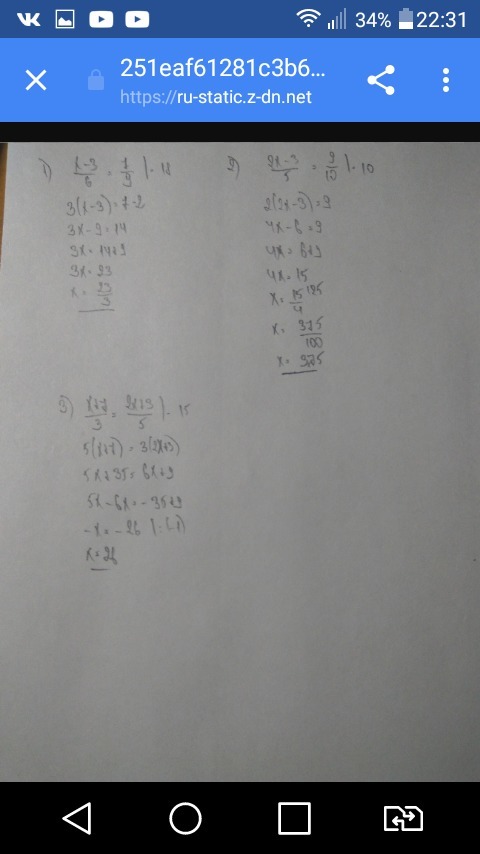 34% 22:31
251eaf61281c3b6...
https://ru-static.z-dn.net
1) x-3/6 = 7/9 |· 18
3(x-3)=7·2
3x-9=14
3x=14+9
3x=23
x= 23/3
2) 2x-3/5 = 9/10 |· 10
2(2x-3)=9
4x-6=9
4x=6+9
4x=15
x= 15/4
x= 375/100
x= 3,75
3) x+7/3 = 2x+3/5 |· 15
5(x+7)=3(2x+3)
5x+35=6x+9
5x-6x=-35+9
-x=-26 |:(-1)
x=26